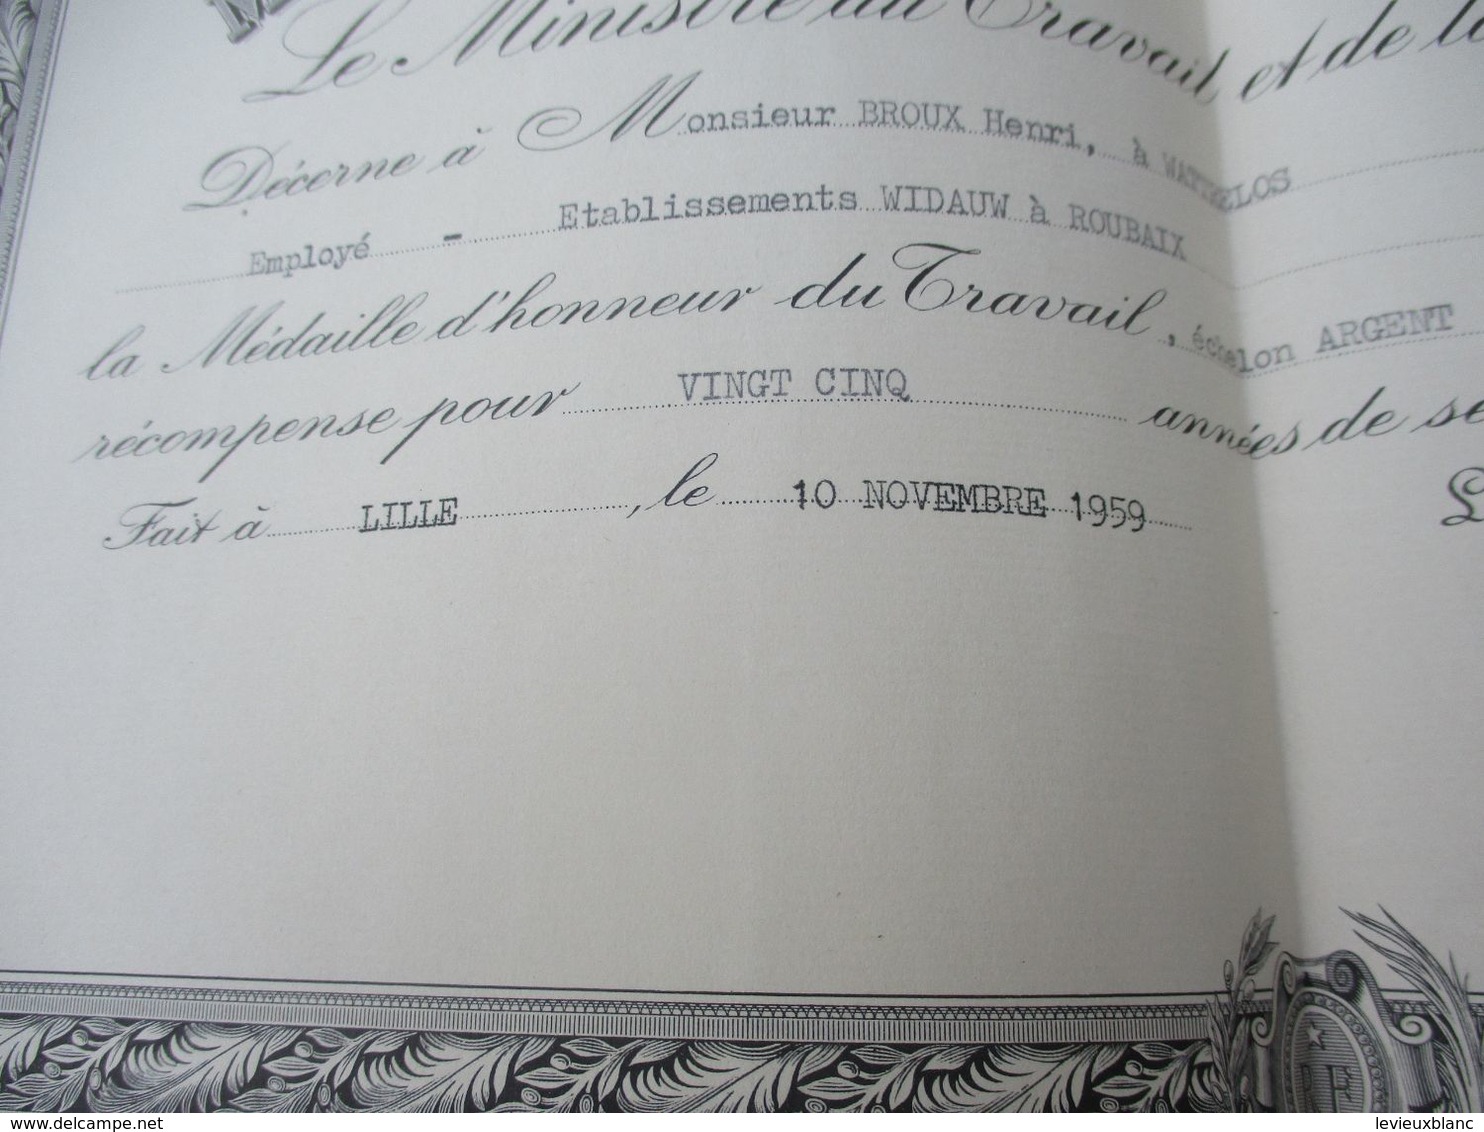 Le Ministre du Travail et de la
Décerne à Monsieur BROUX Henri, à WATTRELOS
Employé - Etablissements WIDAUW à ROUBAIX
la Médaille d'honneur du Travail, échelon ARGENT
récompense pour VINGT CINQ années de se
Fait à LILLE, le 10 NOVEMBRE 1959
delcampe.net
levieuxblanc